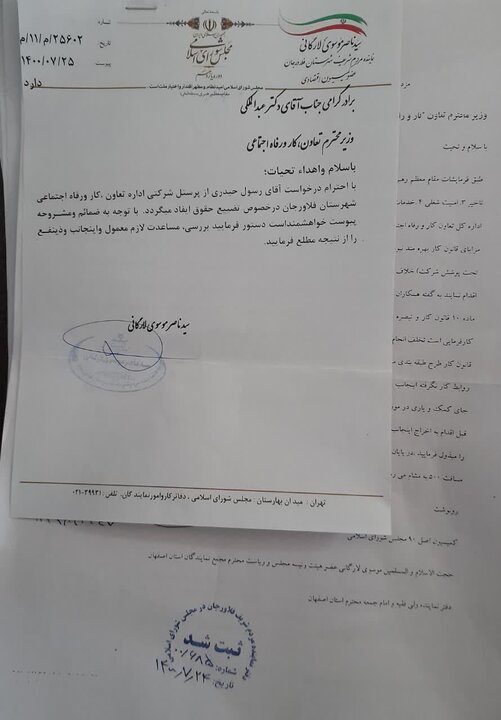 بسمه تعالی
مجلس شورای اسلامی
سید ناصر موسوی لارگانی
نماینده مردم شریف شهرستان فلاورجان
عضو کمیسیون اقتصادی
شماره:
۲۵۶۰۲/م/۱۱/م
تاریخ:
۱۴۰۰/۰۷/۲۵
پیوست:
دارد
مجلس شورای اسلامی، امید نظام و مظهر اقتدار و اختیار ملت است
برادر گرامی جناب آقای دکتر عبدالملکی
وزیر محترم تعاون، کار و رفاه اجتماعی
باسلام واهداء تحیات؛
با احترام درخواست آقای رسول حیدری از پرسنل شرکتی اداره تعاون ،کار ورفاه اجتماعی
شهرستان فلاورجان درخصوص تضییع حقوق ایفاد میگردد. با توجه به ضمائم ومشروحه
پیوست خواهشمنداست دستور فرمایید بررسی، مساعدت لازم معمول واینجانب وذینفع
را از نتیجه مطلع فرمایید.
سید ناصر موسوی لارگانی
تهران : میدان بهارستان - مجلس شورای اسلامی ، دفاتر کار و امور نمایندگان . تلفن : ۳۹۹۳۱-۰۲۱
وزیر محترم تعاون "کار و
با سلام و تحیت
طبق فرمایشات مقام معظم رهبر
تاخیر ۳. امنیت شغلی ۴. خدمات
اداره کل تعاون کار و رفاه
مزایای قانون کار بهره مند
تحت پوشش شرکت) خلاف
اقدام نمایند به گفته همکاران
ماده ۱۰ قانون کار و تبصره
کارفرمایی است تخلف انجام
قانون کار طرح طبقه بندی
روابط کار نگرفته اینجانب
جای کمک و یاری در مورد
قبل اقدام به اخراج اینجانب
را مبذول فرمایید .در پایان
مسافت ۵۰۰ به مشام می
رونوشت
کمیسیون اصل ۹۰ مجلس شورای اسلامی
حجت الاسلام و المسلمین موسوی لارگانی عضو هیئت رئیسه مجلس و ریاست محترم مجمع نمایندگان استان اصفهان
دفتر نماینده ولی فقیه و امام جمعه محترم استان اصفهان
دفتر نماینده مردم شریف فلاورجان در مجلس شورای اسلامی
ثبت شد
شماره:
تاریخ: ۱۴۰۰/۷/۲۴